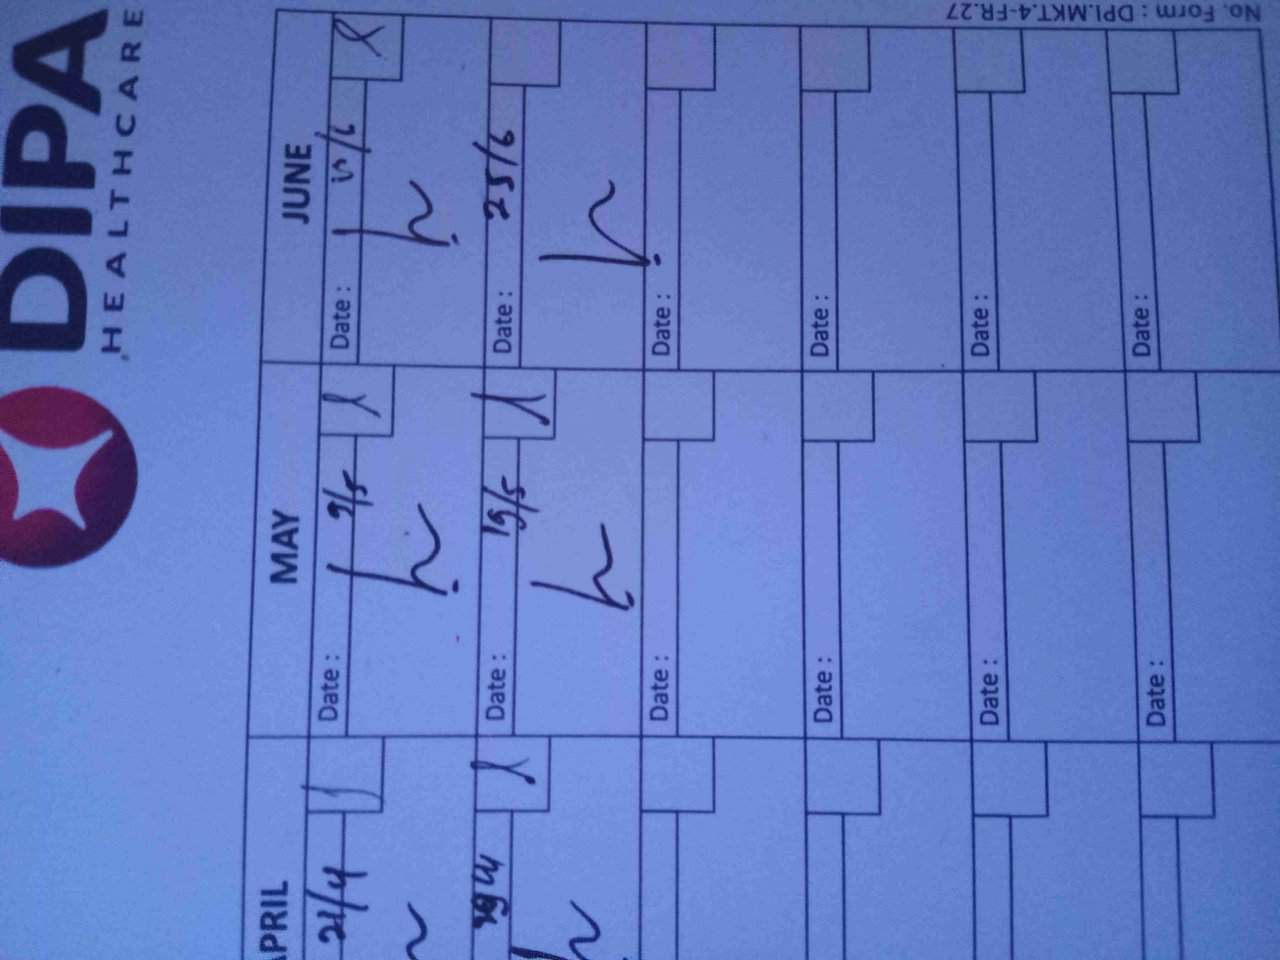 DIPA
HEALTHCARE
APRIL MAY JUNE
21/4 Date : 9/5 Date :
Date : 19/5 Date : 25/6
Date : Date :
Date : Date :
Date : Date :
Date : Date :
No. Form : DPI.MKT.4-FR.27